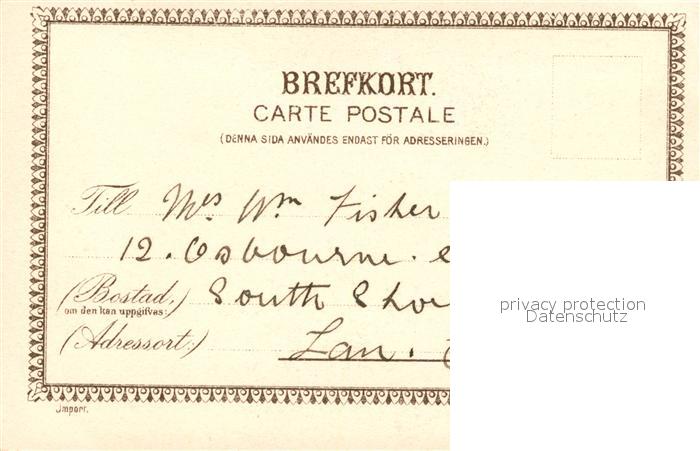 BREFKORT.
CARTE POSTALE
(DENNA SIDA ANVÄNDES ENDAST FÖR ADRESSERINGEN.)
Till Mrs Wm Fisher
12. Osbourne.
(Bostad,) South
om den kan uppgifvas:
(Adressort:) Lan.
privacy protection
Datenschutz
Import.